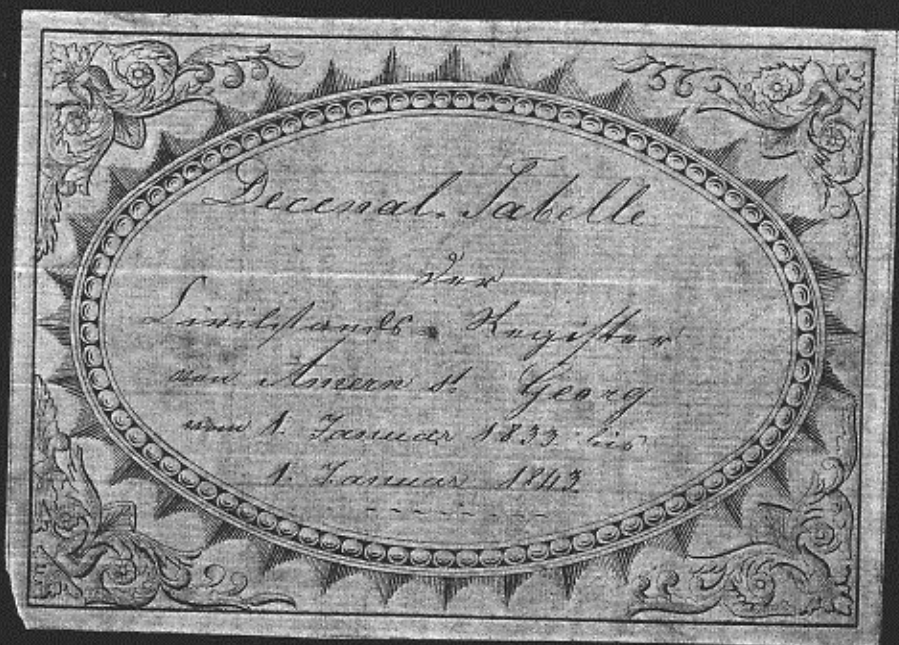 Decenal-Tabelle
der
Civilstands-Register
von Amern st Georg
vom 1. Januar 1833 bis
1. Januar 1843